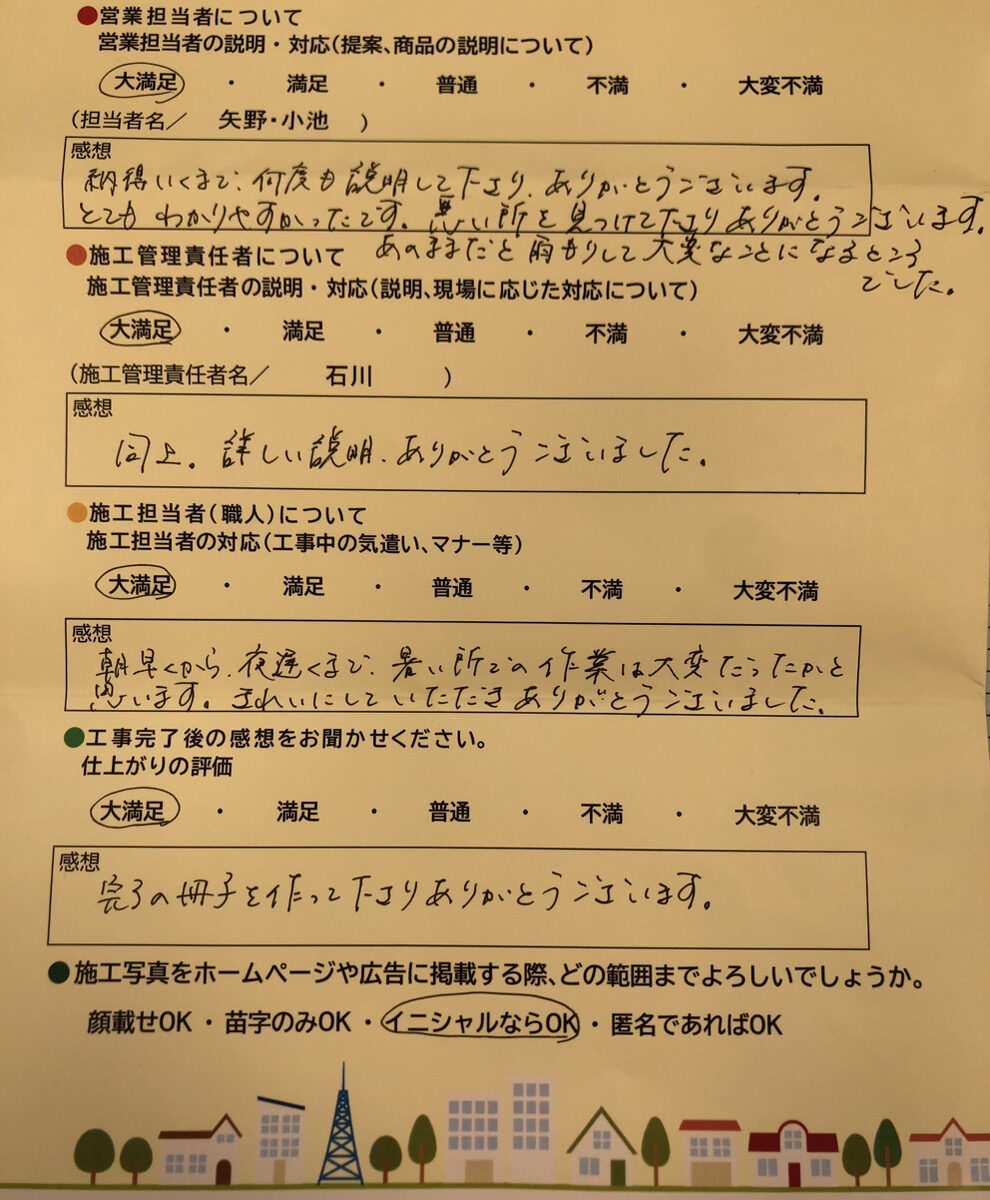 ●営業担当者について
営業担当者の説明・対応(提案、商品の説明について)
大満足 ・ 満足 ・ 普通 ・ 不満 ・ 大変不満
(担当者名/ 矢野・小池 )
感想
納得いくまで、何度も説明して下さり、ありがとうございます。
とてもわかりやすかったです。悪い所を見つけて下さりありがとうございます。
あのままだと雨もりして大変なことになるところ
でした。
●施工管理責任者について
施工管理責任者の説明・対応(説明、現場に応じた対応について)
大満足 ・ 満足 ・ 普通 ・ 不満 ・ 大変不満
(施工管理責任者名/ 石川 )
感想
同上。詳しい説明、ありがとうございました。
●施工担当者(職人)について
施工担当者の対応(工事中の気遣い、マナー等)
大満足 ・ 満足 ・ 普通 ・ 不満 ・ 大変不満
感想
朝早くから、夜遅くまで、暑い所での作業は大変だったかと
思います。きれいにしていただきありがとうございました。
●工事完了後の感想をお聞かせください。
仕上がりの評価
大満足 ・ 満足 ・ 普通 ・ 不満 ・ 大変不満
感想
完了の冊子を作って下さりありがとうございます。
●施工写真をホームページや広告に掲載する際、どの範囲までよろしいでしょうか。
顔載せOK・苗字のみOK・イニシャルならOK・匿名であればOK